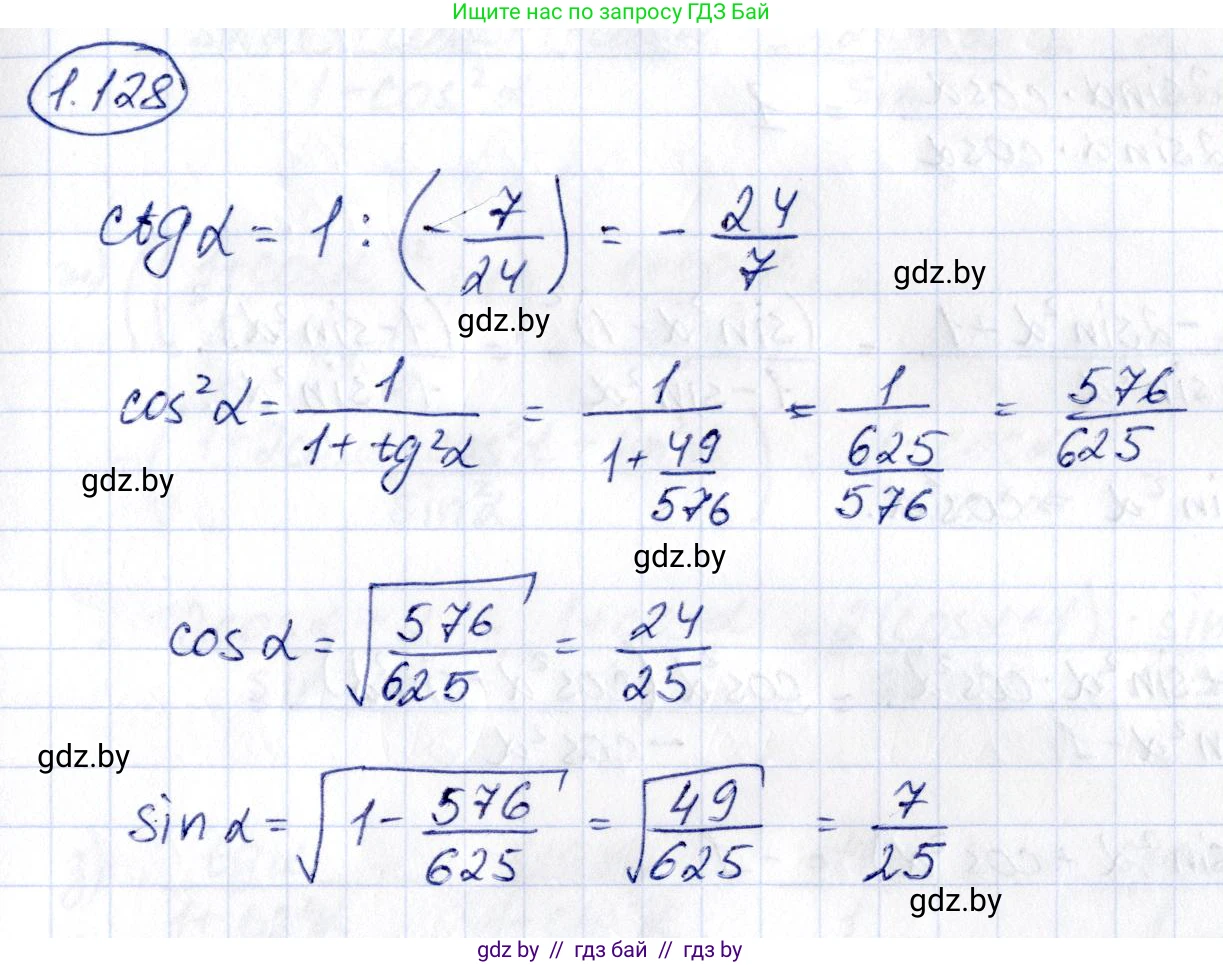 Ищите нас по запросу ГДЗ Бай
1.128
ctg α = 1 : (- 7/24) = - 24/7
gdz.by
gdz.by
cos²α = 1/(1 + tg²α) = 1/(1 + 49/576) = 1/(625/576) = 576/625
gdz.by
gdz.by
cos α = √(576/625) = 24/25
gdz.by
sin α = √(1 - 576/625) = √(49/625) = 7/25
gdz.by
gdz.by // гдз бай // гдз by